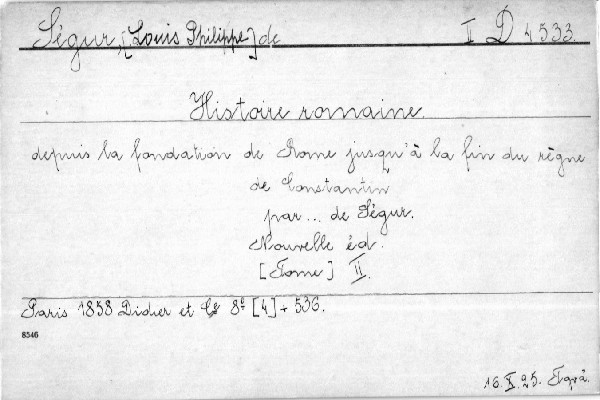 Ségur, [Louis Philippe] de II D 4533.
Histoire romaine.
depuis la fondation de Rome jusqu'à la fin du règne
de Constantin
par... de Ségur.
Nouvelle éd.
[Tome] II.
Paris 1858 Didier et Cie 8° [4] + 536.
8546
16.X.25.